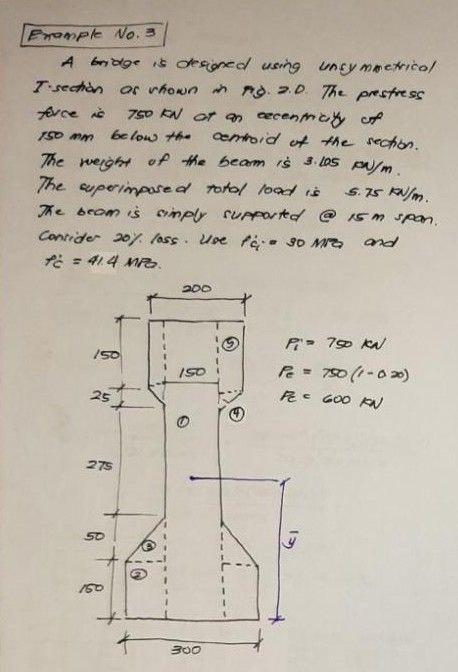 Example No. 3
A bridge is designed using unsymmetrical
I-section as shown in Fig. 2.0. The prestress
force is 750 KN at an eccentricity of
150 mm below the centroid of the section.
The weight of the beam is 3.105 KN/m.
The superimposed total load is 5.75 KN/m.
The beam is simply supported @ 15 m span.
Consider 20% loss. Use f'ci = 30 MPa and
f'c = 41.4 MPa.
200
150
5
150
25
4
1
275
50
3
2
150
300
ȳ
Pi = 750 KN
Pe = 750 (1-0.20)
Pe = 600 KN